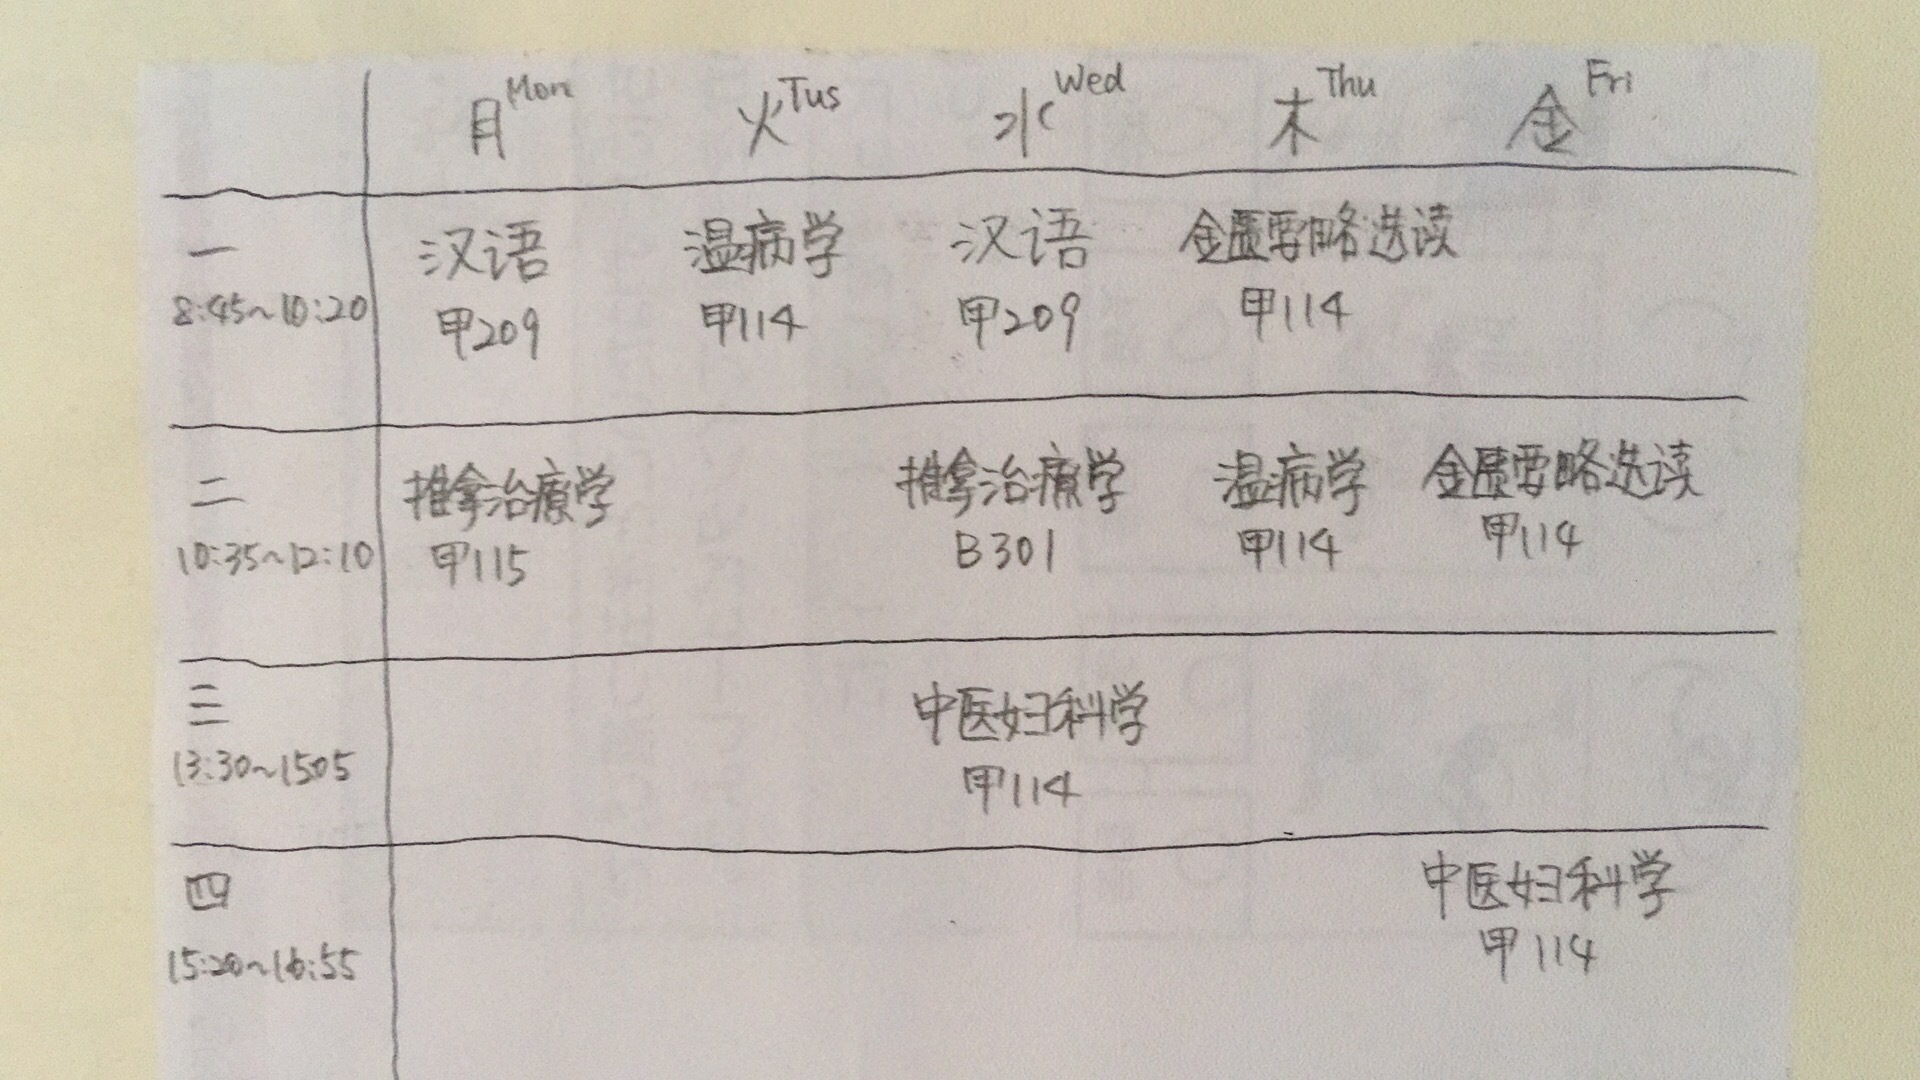 月Mon 火Tus 水Wed 木Thu 金Fri
一 汉语 温病学 汉语 金匮要略选读
8:45~10:20 甲209 甲114 甲209 甲114
二 推拿治療学 推拿治療学 温病学 金匮要略选读
10:35~12:10 甲115 B301 甲114 甲114
三 中医妇科学
13:30~1505 甲114
四 中医妇科学
15:20~16:55 甲114